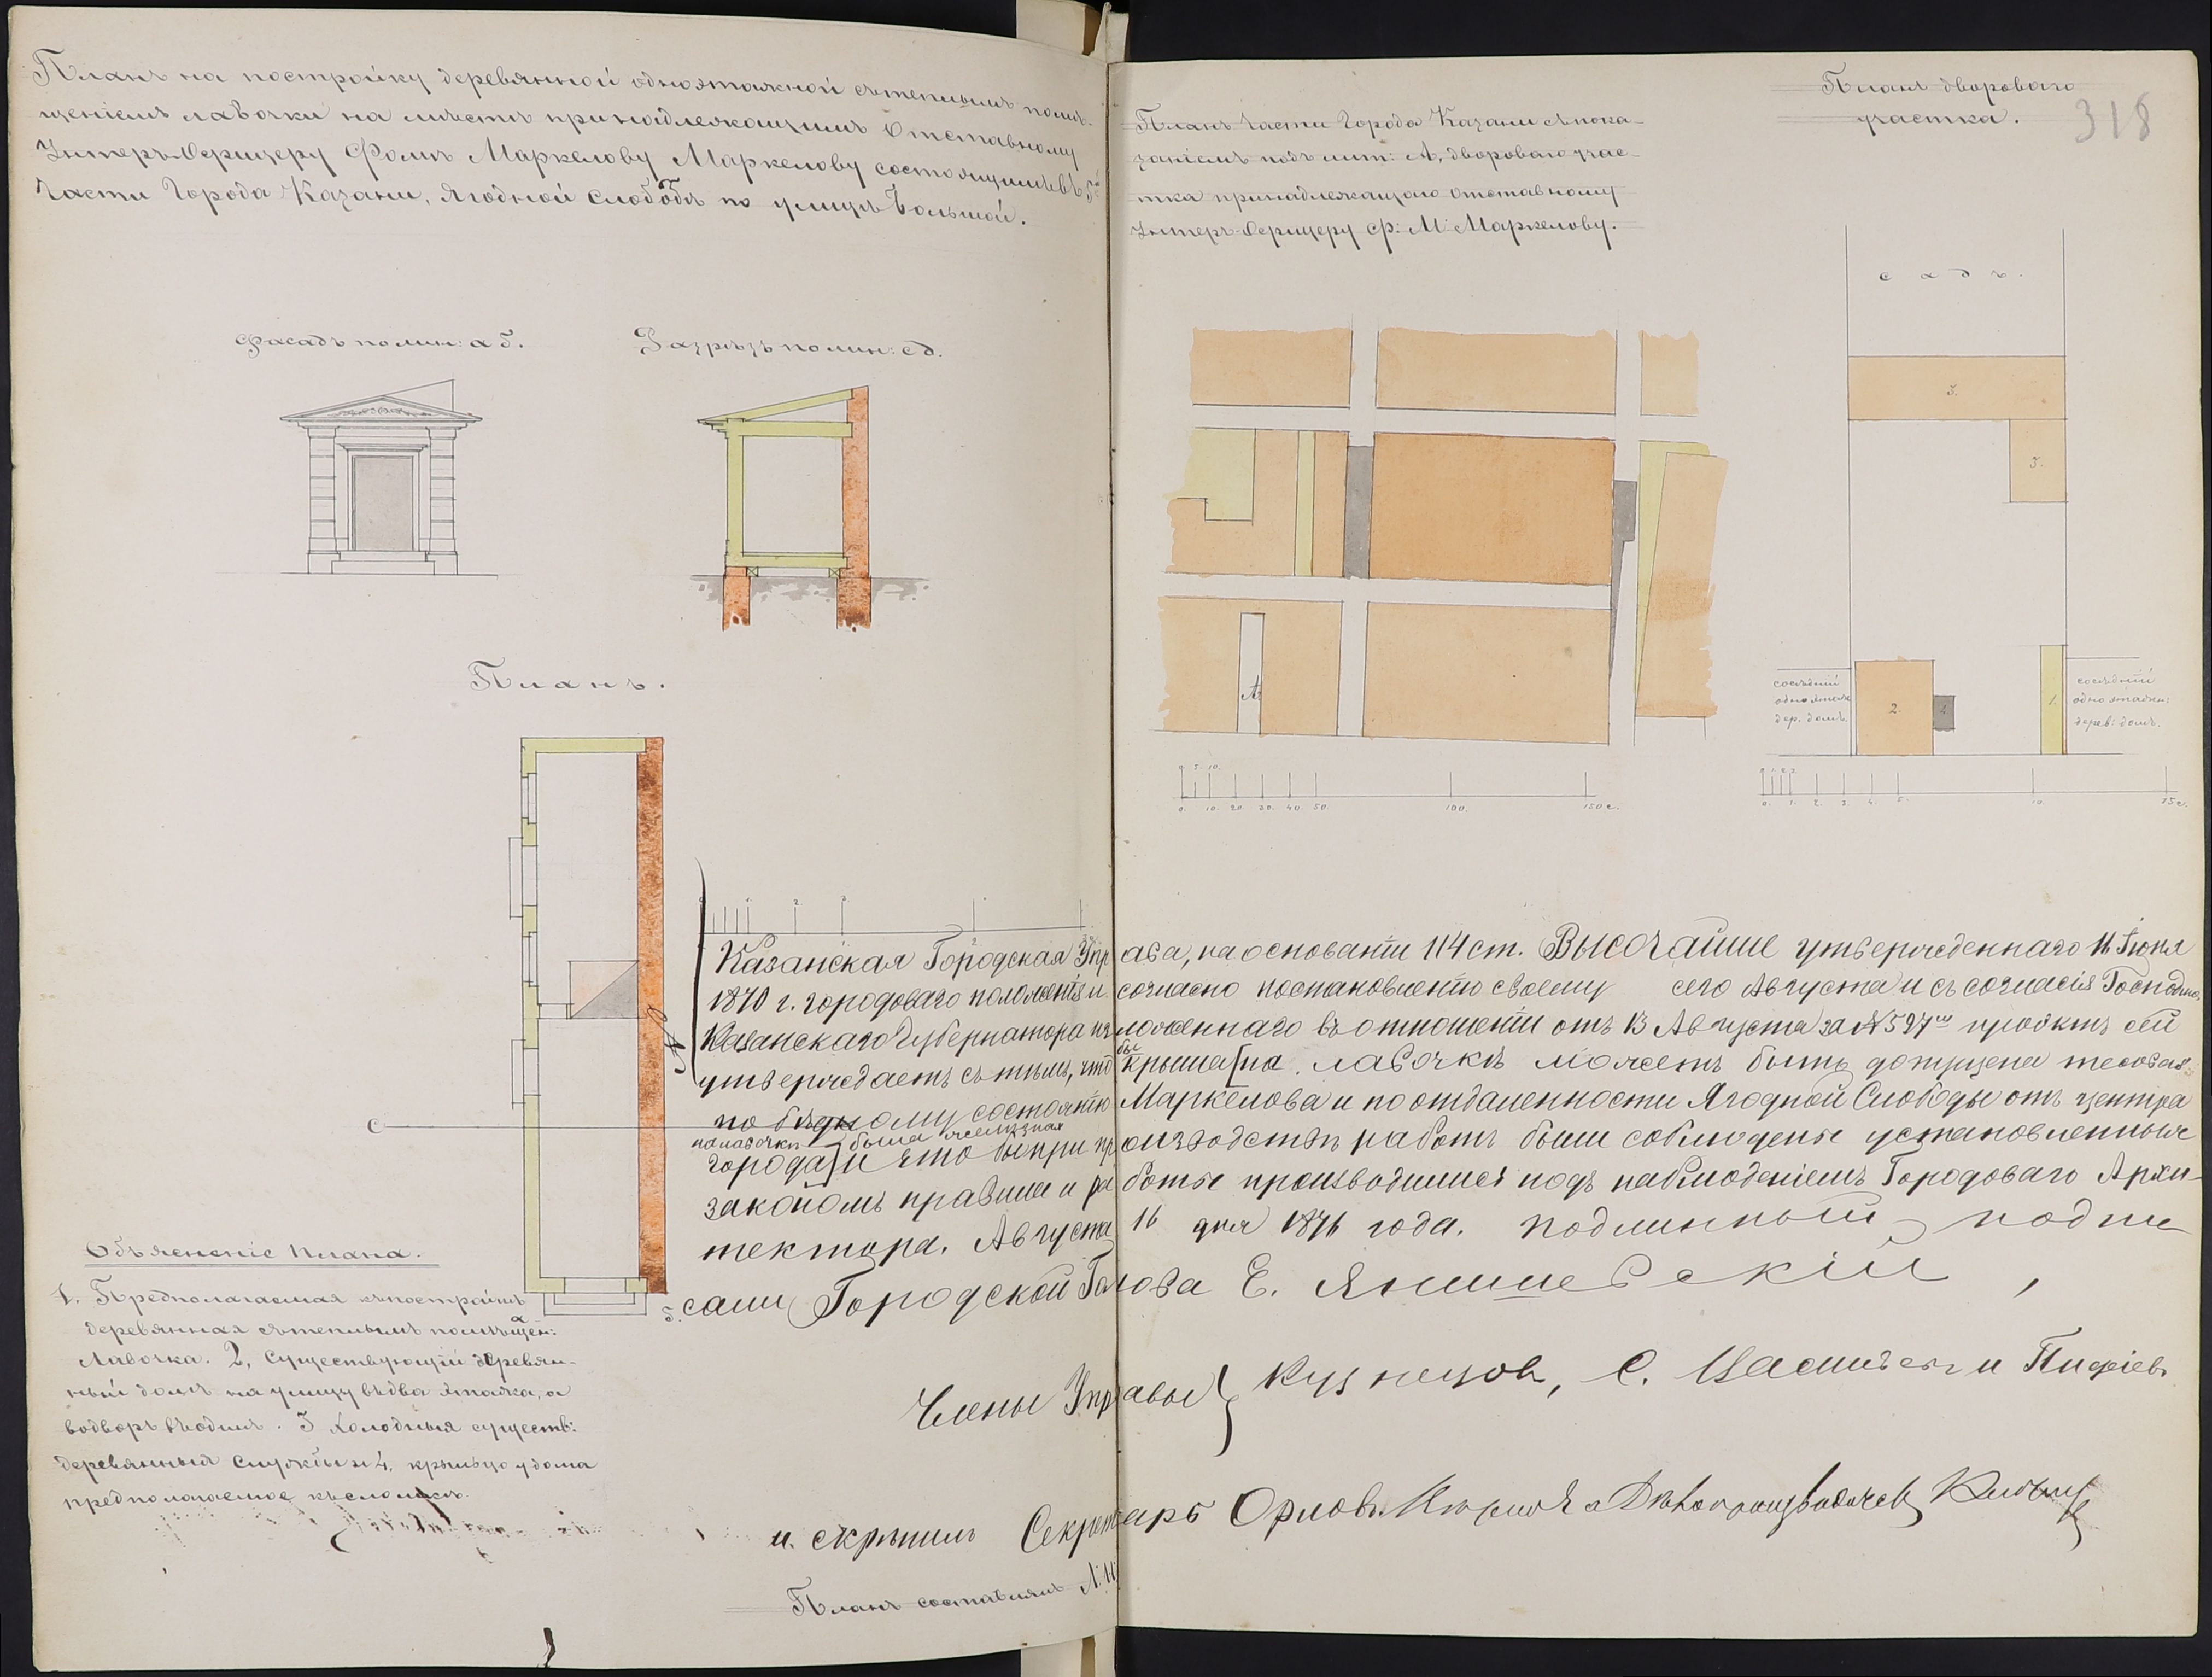 Планъ на постройку деревянной одноэтажной съ теплымъ помѣ-
щеніемъ лавочки на мѣстѣ принадлежащимъ Отставному
Унтеръ-Офицеру Фомѣ Маркелову Маркелову состоящимъ въ 5й
части Города Казани, Ягодной слободѣ по улицѣ Большой.
Фасадъ по лин: а б.
Разрѣзъ по лин: с д.
Планъ.
с
а
б.
Объясненіе плана.
1. Предполагаемая къ постройкѣ
деревянная съ теплымъ помѣщен:
Лавочка. 2, Существующій деревян-
ный домъ на улицу въ два этажа, а
во дворъ въ одинъ. 3 Холодныя существ:
деревянныя службы и 4, крыльцо у дома
предполагаемое къ сломкѣ.
План части Города Казани съ пока-
заніемъ подъ лит: А, двороваго учас-
тка принадлежащаго Отставному
Унтеръ-Офицеру Ф: М: Маркелову.
А
0. 5. 10.
0. 10. 20. 30. 40. 50. 100. 150 с.
Планъ двороваго
участка.
318
с а д ъ.
3.
3.
сосѣдній
одноэтаж
дер. домъ.
2.
4
1.
сосѣдній
одноэтажн:
дерев: домъ.
0. 1. 2. 3. 4. 5. 10. 15 с.
Казанская Городская Управа, на основаніи 114 ст. Высочайше утвержденнаго 16 Іюня
1870 г. городоваго положенія и согласно постановленію своему сего Августа и съ согласія Господина
Казанскаго Губернатора изложеннаго въ отношеніи отъ 13 Августа за № 527 проэктъ сей
утверждаетъ съ тѣмъ, чтобы крыша на лавочкѣ можетъ быть допущена тесовая
по бѣдному состоянію Маркелова и по отдаленности Ягодной Слободы отъ центра
на лавочкѣ была желѣзная
города и что бы при производствѣ работъ были соблюдены установленныя
закономъ правила и работы производились подъ наблюденіемъ Городоваго Архи-
тектора. Августа 16 дня 1876 года. Подлинный подпи
сали Городской Голова Е. Янишевскій,
Члены Управы Кузнецовъ, С. и
и скрѣпилъ Секретарь Орловъ.
Планъ составлялъ